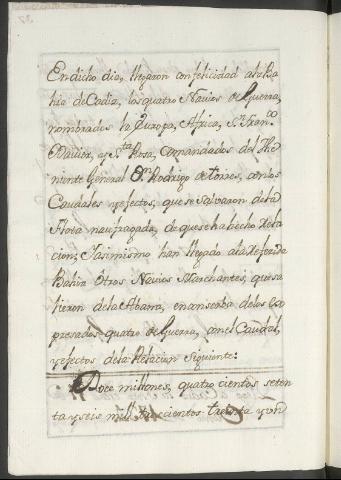 En dicho dia, llegaron con felicidad ala Ba
hia de Cadiz, los quatro Navios de Guerra,
nombrados la Europa, Africa, Sn. Franco.
Xavier, y Sta. Rosa, Comandados del The
niente General Dn. Rodrigo de torres, con los
Caudales y efectos, que se salvaron dela
Flota naufragada, de que se ha hecho rela
cion; Yasimismo han llegado ala referida
Bahia Otros Navios Marchantes, que sa
lieron dela Abana, en conserba de los ex
presados quatro de Guerra, con el Caudal,
y efectos dela Relacion Siguiente:
Doce millones, quatro cientos seten
ta y seis mill, trescientos treinta y un